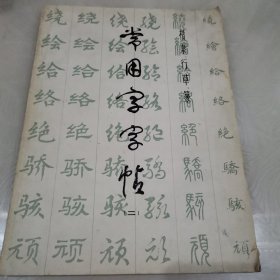 常用字字帖
二
行草篆
绕绕绕绕繞繞
绘绘绘绘繪繪
给给给给給給
络络络络絡絡
绝绝绝绝絕絕
骄骄骄骄驕驕
骇骇骇骇駭駭
顽顽顽顽頑頑